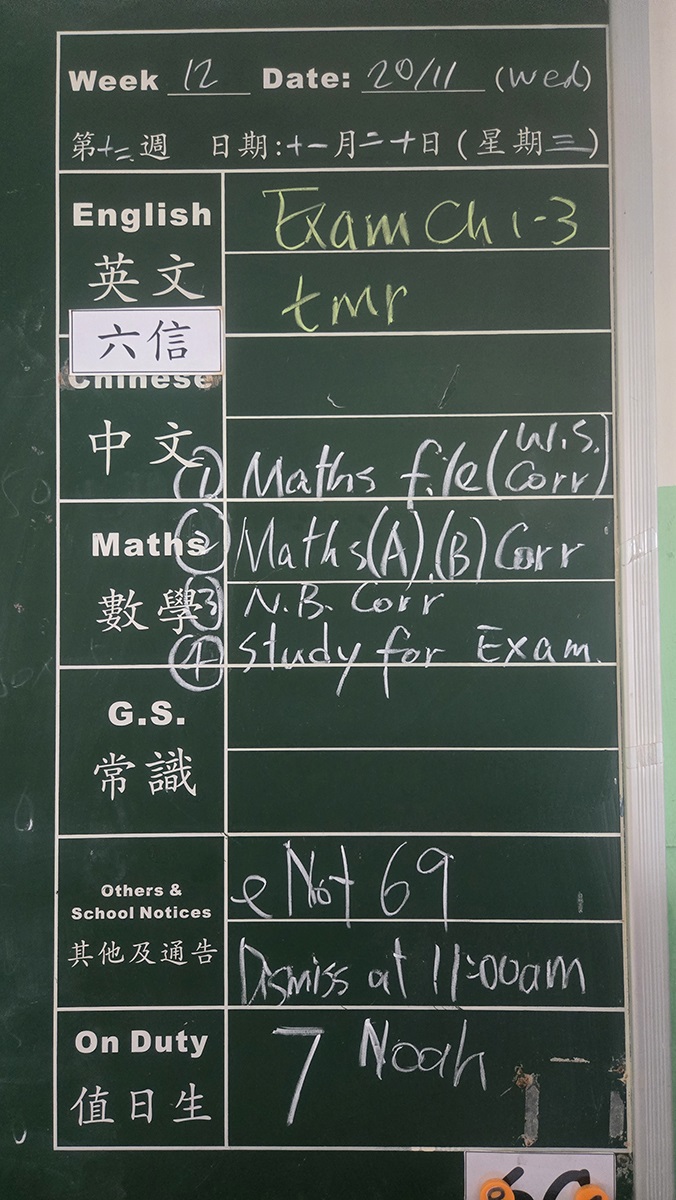 Week 12 Date: 20/11 (Wed)
第十二週 日期:十一月二十日(星期三)
English
英文
Exam Ch 1-3
tmr
六信
Chinese
中文
① Maths file (W.S. Corr)
Maths
② Maths(A),(B) Corr
數學
③ N.B. Corr
④ Study for Exam.
G.S.
常識
Others &
School Notices
其他及通告
eNot 69
Dismiss at 11:00am
On Duty
值日生
7 Noah